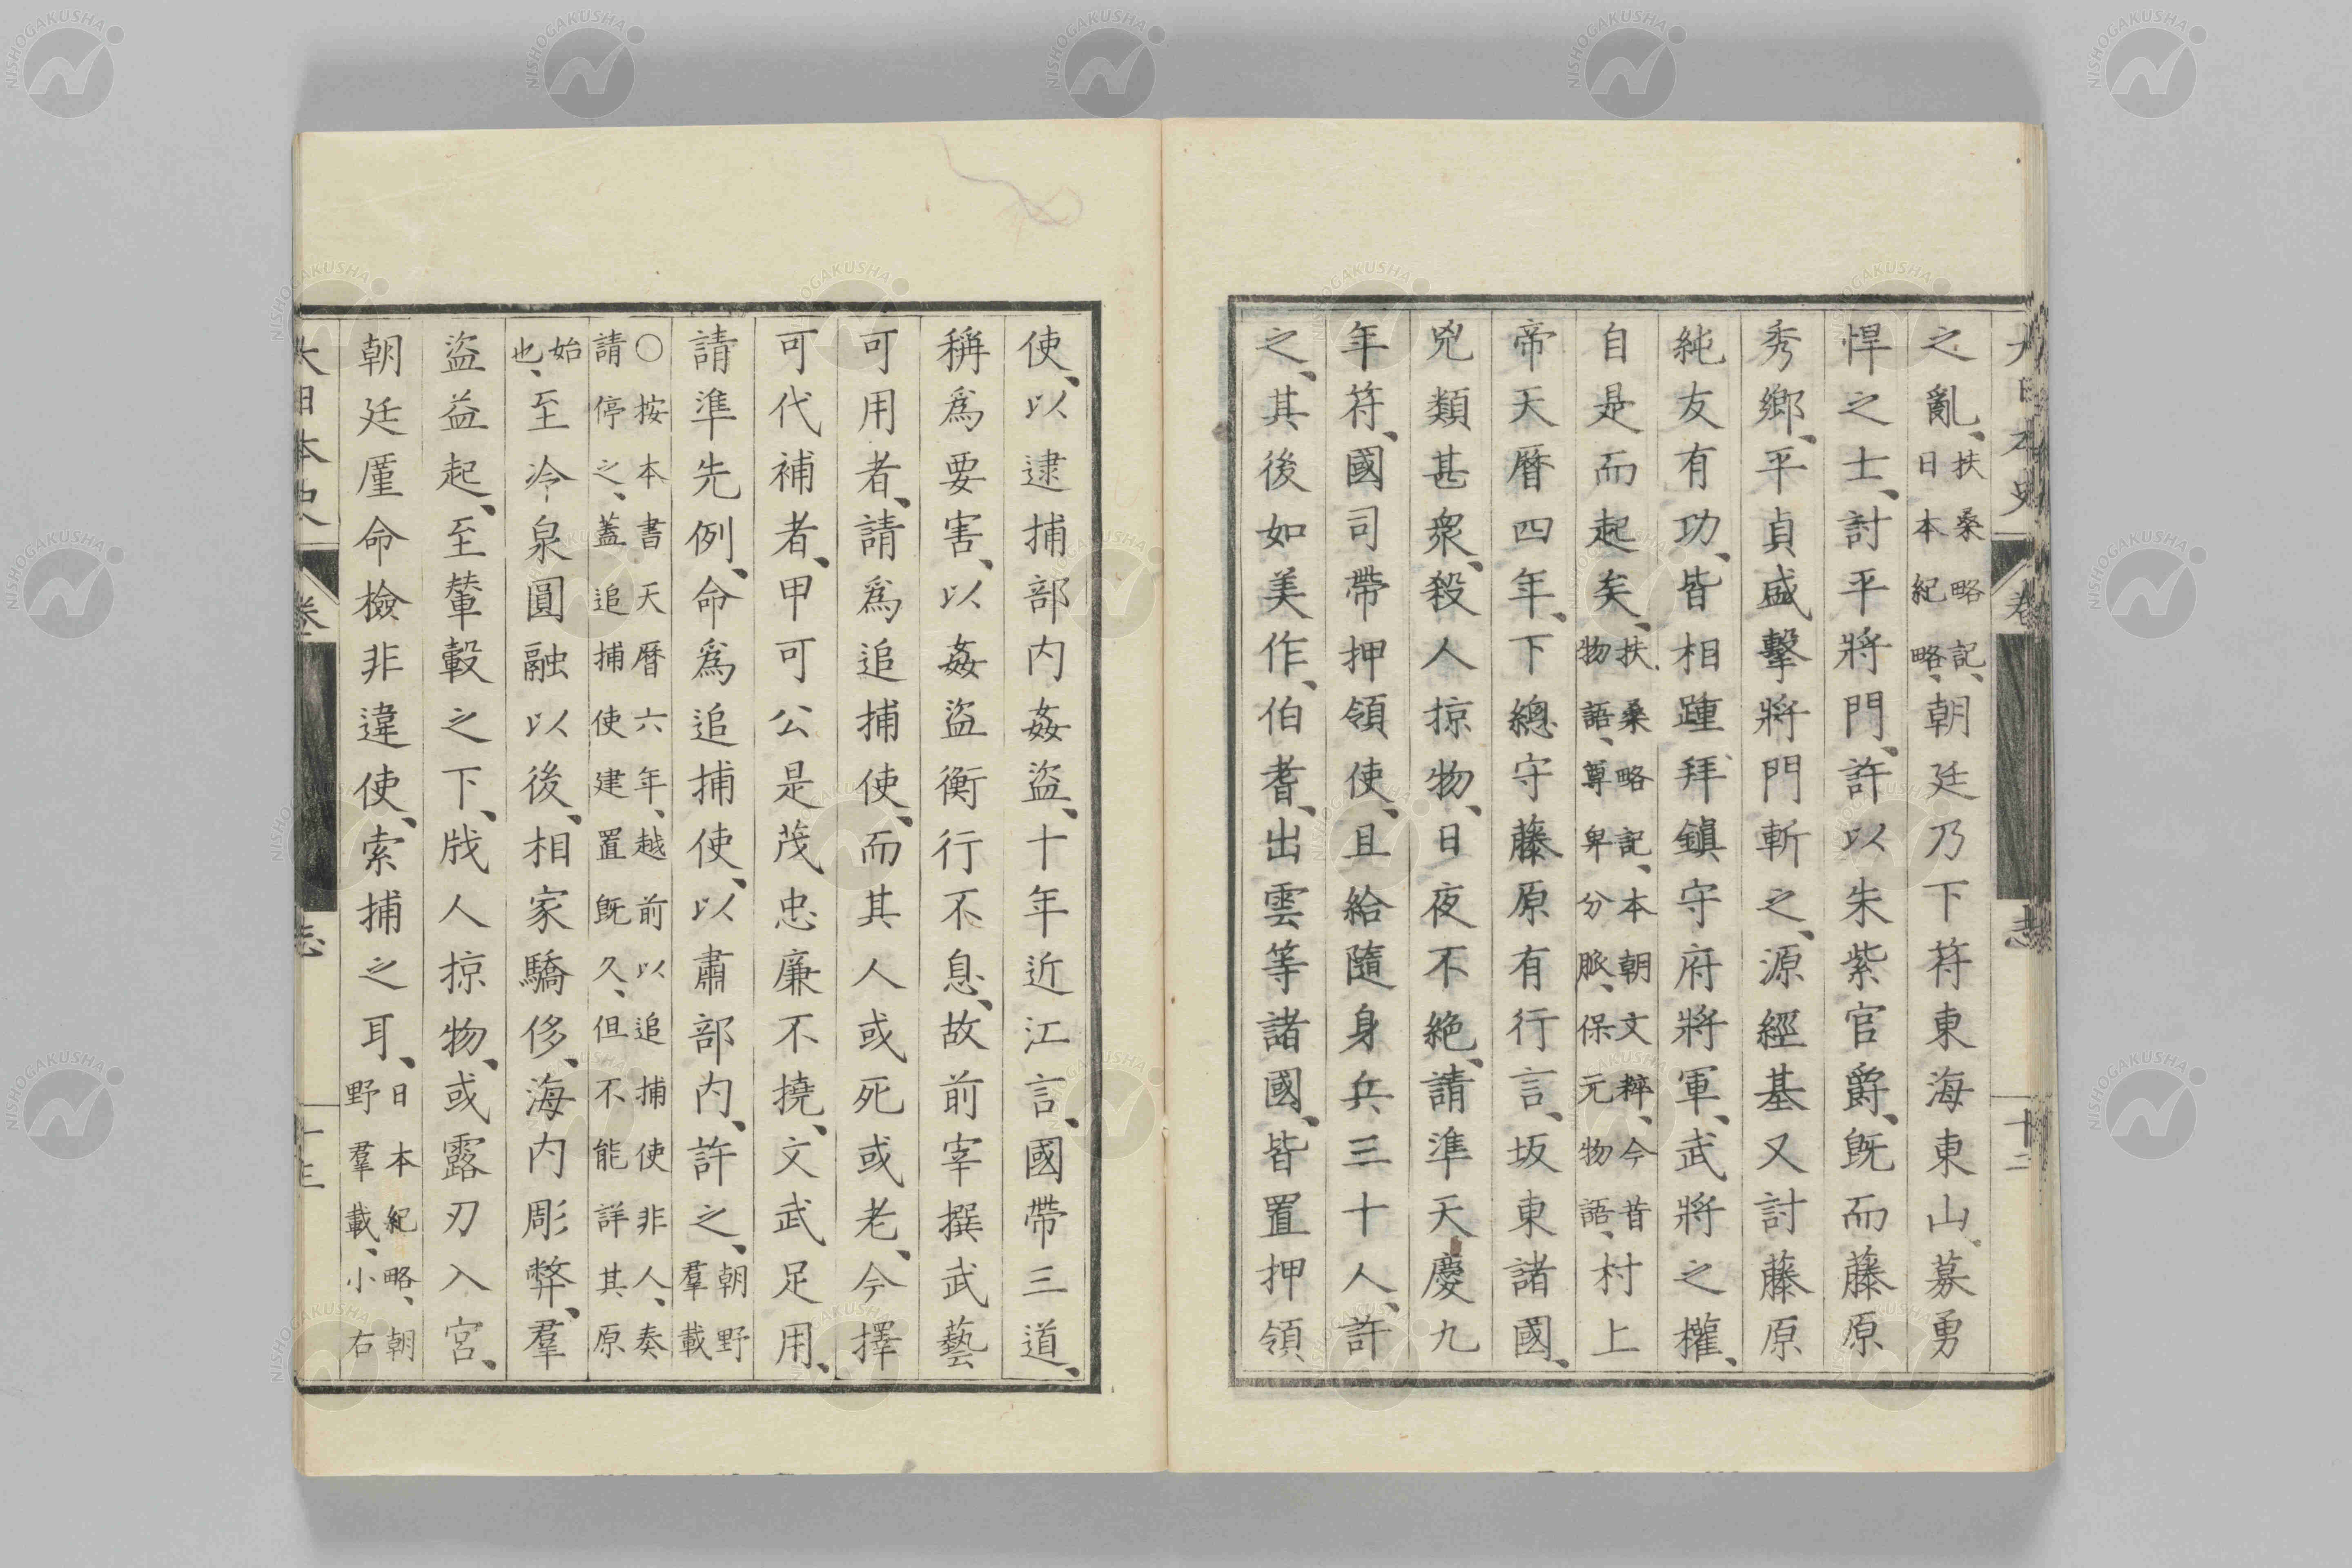 之亂、扶桑略記、日本紀略、朝廷乃下符東海東山、募勇
悍之士、討平將門、許以朱紫官爵、既而藤原
秀鄉、平貞盛擊將門斬之、源經基又討藤原
純友有功、皆相踵拜鎮守府將軍、武將之權、
自是而起矣、扶桑略記、本朝文粹、今昔物語、尊卑分脈、保元物語、村上
帝天曆四年、下總守藤原有行言、坂東諸國、
兇類甚衆、殺人掠物、日夜不絶、請準天慶九
年符、國司帶押領使、且給隨身兵三十人、許
之、其後如美作、伯耆、出雲等諸國、皆置押領
使、以逮捕部内姦盜、十年近江言、國帶三道、
稱爲要害、以姦盜衡行不息、故前宰撰武藝
可用者、請爲追捕使、而其人或死或老、今擇
可代補者、甲可公是茂忠廉不撓、文武足用、
請準先例、命爲追捕使、以肅部内、許之、朝野羣載
○按本書天曆六年、越前以追捕使非人、奏請停之、蓋追捕使建置既久、但不能詳其原
始也、至冷泉圓融以後、相家驕侈、海内彫弊、羣
盜益起、至輦轂之下、戕人掠物、或露刃入宮、
朝廷廑命檢非違使、索捕之耳、日本紀略、朝野羣載、小右
大日本史 卷 志 十三